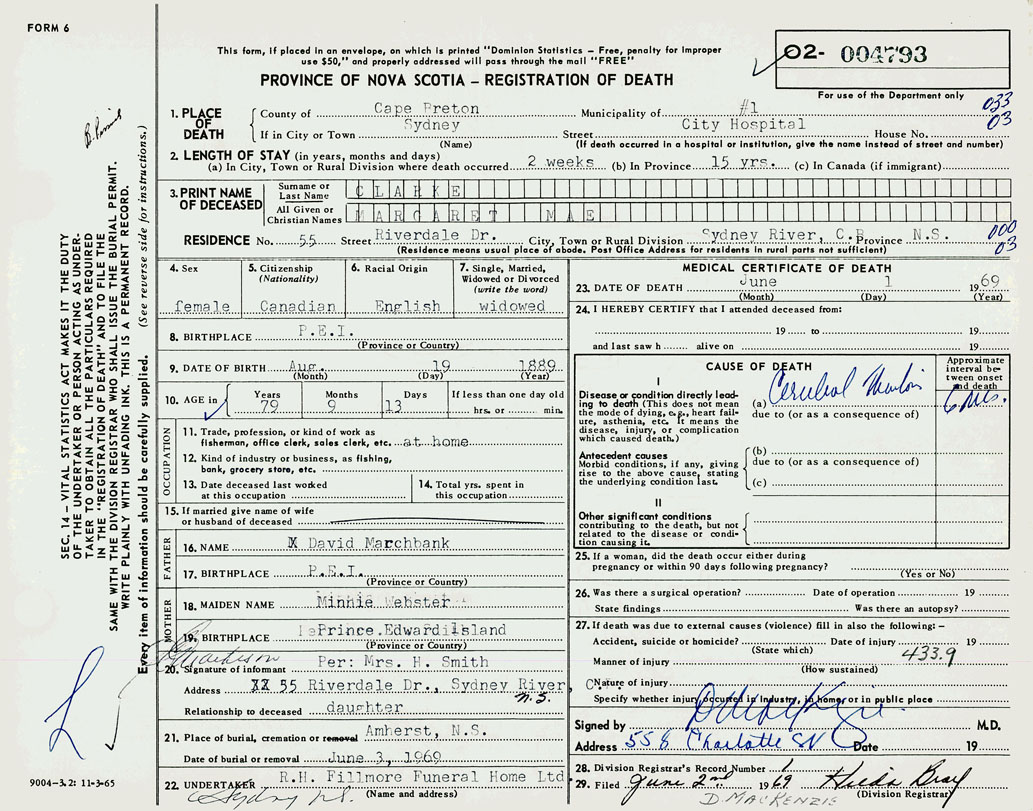 FORM 6
This form, if placed in an envelope, on which is printed "Dominion Statistics - Free, penalty for improper
use $50," and properly addressed will pass through the mail "FREE"
PROVINCE OF NOVA SCOTIA - REGISTRATION OF DEATH
02- 004793
For use of the Department only
033
03
1. PLACE OF DEATH
County of Cape Breton Municipality of #1
If in City or Town Sydney Street City Hospital House No.
(Name) (If death occurred in a hospital or institution, give the name instead of street and number)
2. LENGTH OF STAY (in years, months and days)
(a) In City, Town or Rural Division where death occurred 2 weeks (b) In Province 15 yrs. (c) In Canada (if immigrant)
3. PRINT NAME OF DECEASED
Surname or Last Name CLARKE
All Given or Christian Names MARGARET MAE
RESIDENCE No. 55 Street Riverdale Dr. City, Town or Rural Division Sydney River, C.B. Province N.S.
(Residence means usual place of abode. Post Office Address for residents in rural parts not sufficient)
000
03
4. Sex
female
5. Citizenship
(Nationality)
Canadian
6. Racial Origin
English
7. Single, Married,
Widowed or Divorced
(write the word)
widowed
8. BIRTHPLACE P.E.I.
(Province or Country)
9. DATE OF BIRTH Aug. 19 1889
(Month) (Day) (Year)
10. AGE in
Years Months Days If less than one day old
79 9 13 hrs. or min.
OCCUPATION
11. Trade, profession, or kind of work as
fisherman, office clerk, sales clerk, etc. at home
12. Kind of industry or business, as fishing,
bank, grocery store, etc.
13. Date deceased last worked
at this occupation
14. Total yrs. spent in
this occupation
15. If married give name of wife
or husband of deceased
FATHER
16. NAME X David Marchbank
17. BIRTHPLACE P.E.I.
(Province or Country)
MOTHER
18. MAIDEN NAME Minnie Webster
19. BIRTHPLACE Prince Edward Island
(Province or Country)
20. Signature of informant Per: Mrs. H. Smith
Address XX 55 Riverdale Dr., Sydney River, C.B.
N.S.
Relationship to deceased daughter
21. Place of burial, cremation or removal Amherst, N.S.
Date of burial or removal June 3, 1969
22. UNDERTAKER R.H. Fillmore Funeral Home Ltd
(Name and address)
Sydney N.S.
MEDICAL CERTIFICATE OF DEATH
23. DATE OF DEATH June 1 1969
(Month) (Day) (Year)
24. I HEREBY CERTIFY that I attended deceased from:
19 to 19
and last saw h alive on 19
CAUSE OF DEATH
Approximate interval between onset and death
I
Disease or condition directly leading to death (This does not mean the mode of dying, e.g., heart failure, asthenia, etc. It means the disease, injury, or complication which caused death.)
(a) Cerebral 6
due to (or as a consequence of)
Antecedent causes
Morbid conditions, if any, giving rise to the above cause, stating the underlying condition last.
(b)
due to (or as a consequence of)
(c)
II
Other significant conditions
contributing to the death, but not related to the disease or condition causing it.
25. If a woman, did the death occur either during
pregnancy or within 90 days following pregnancy?
(Yes or No)
26. Was there a surgical operation? Date of operation 19
State findings Was there an autopsy?
27. If death was due to external causes (violence) fill in also the following: -
Accident, suicide or homicide? Date of injury 19
(State which)
433.9
Manner of injury
(How sustained)
Nature of injury
Specify whether injury occurred in Industry, in home, or in public place
Signed by M.D.
Address 558 Charlotte St Date 19
28. Division Registrar's Record Number
29. Filed June 2nd 1969 Hilda Bray
(Division Registrar)
D. MACKENZIE
SEC. 14 - VITAL STATISTICS ACT MAKES IT THE DUTY
OF THE UNDERTAKER OR PERSON ACTING AS UNDER-
TAKER TO OBTAIN ALL THE PARTICULARS REQUIRED
IN THE "REGISTRATION OF DEATH" AND TO FILE THE
SAME WITH THE DIVISION REGISTRAR WHO SHALL ISSUE THE BURIAL PERMIT.
WRITE PLAINLY WITH UNFADING INK. THIS IS A PERMANENT RECORD.
Every item of information should be carefully supplied. (See reverse side for instructions.)
9004-3.2: 11-3-65